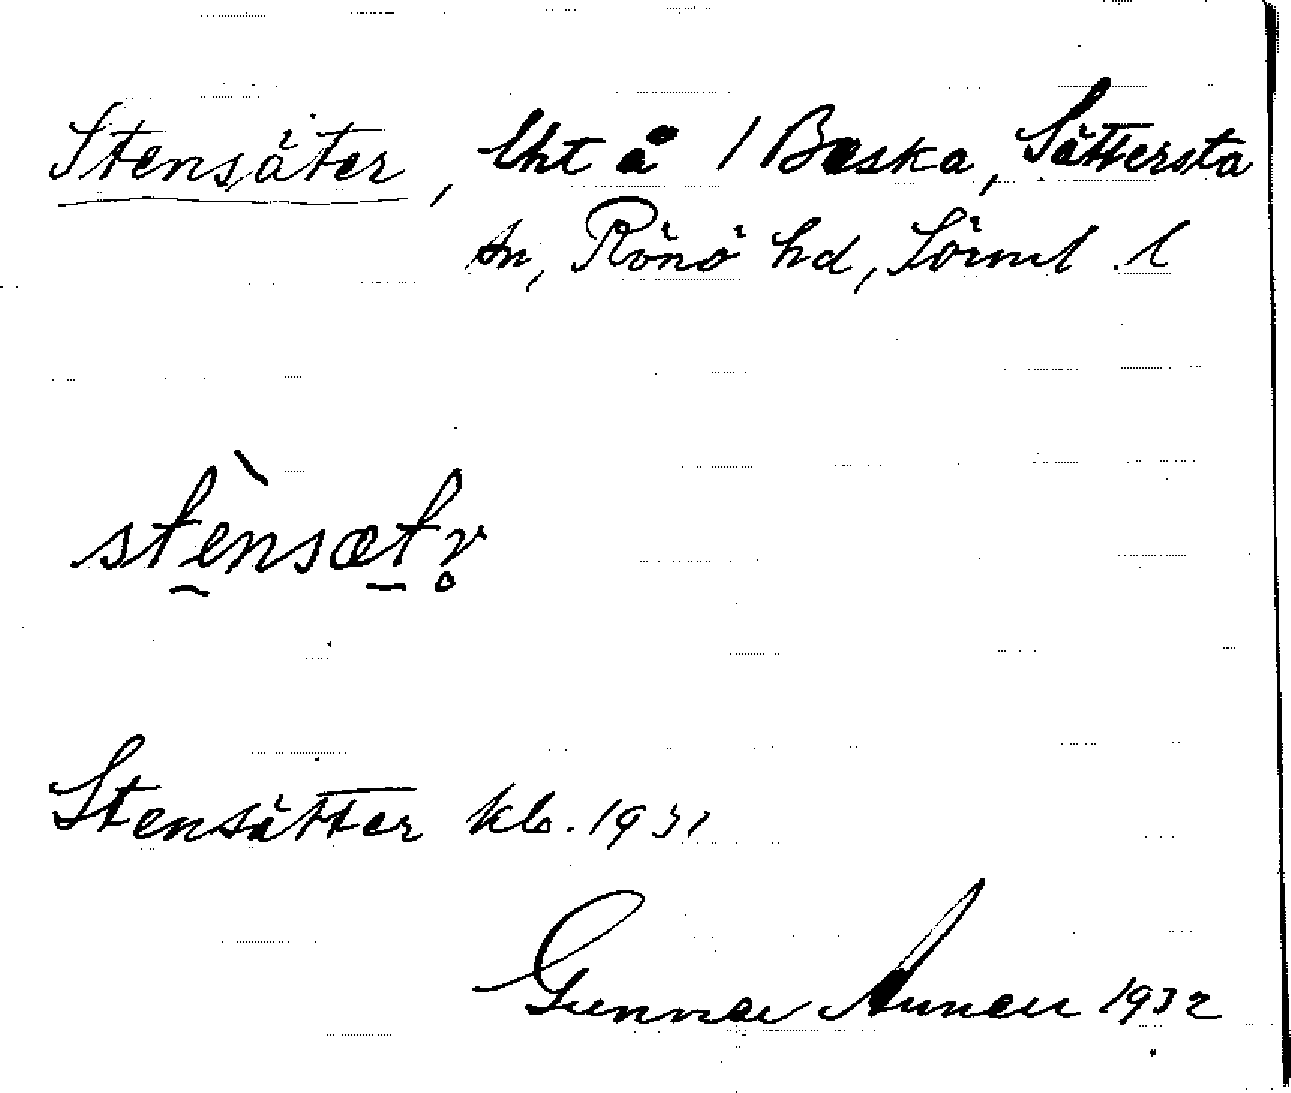 Stensäter, lht å 1 Baska, Sättersta
sn, Rönö hd, Sörml l
stènsætr̥
Stensätter kb. 1931
Gunnar 1932